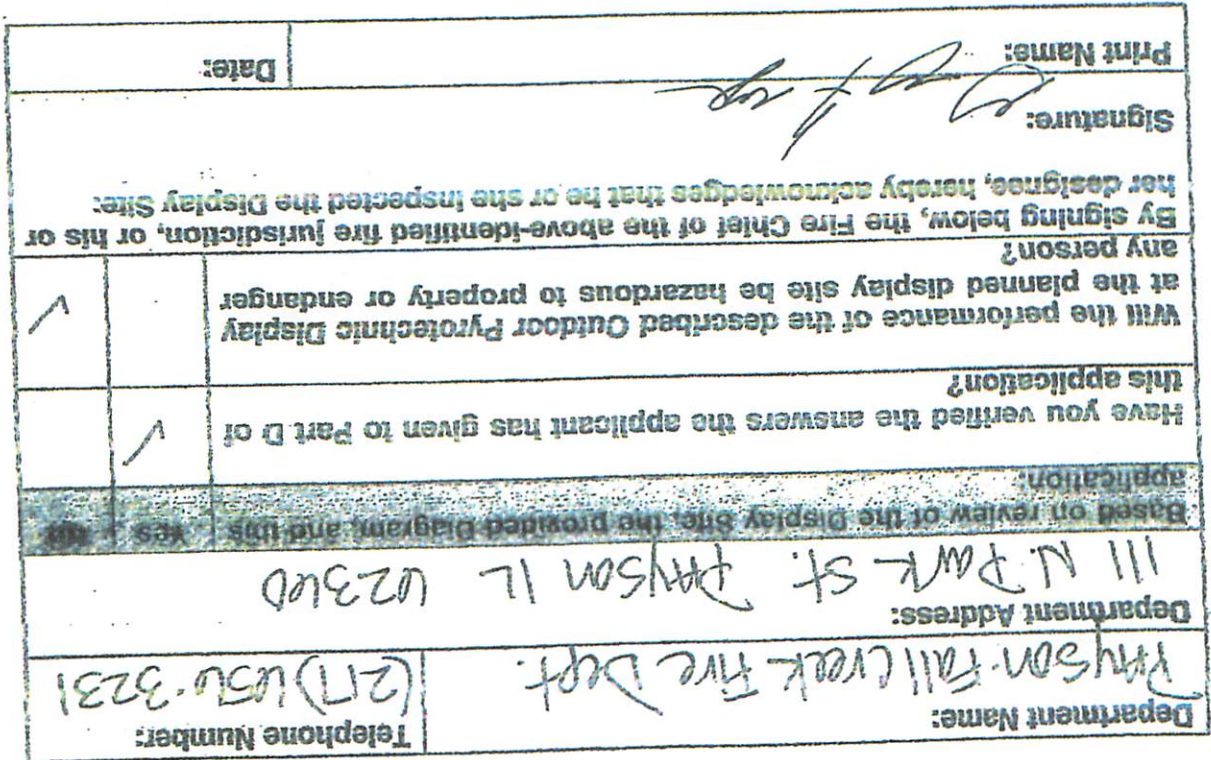 Department Name:
Payson-Fall Creek Fire Dept.
Telephone Number:
(217) 656-3231
Department Address:
111 N. Park St. Payson IL 62360
Based on review of the Display Site, the provided Diagram, and this
application:
Yes
no
Have you verified the answers the applicant has given to Part D of
this application?
✓
Will the performance of the described Outdoor Pyrotechnic Display
at the planned display site be hazardous to property or endanger
any person?
✓
By signing below, the Fire Chief of the above-identified fire jurisdiction, or his or
her designee, hereby acknowledges that he or she inspected the Display Site:
Signature:
Print Name:
Date: